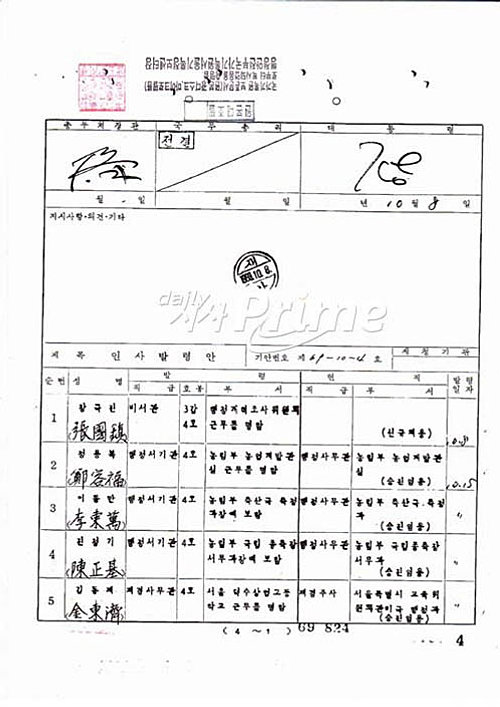 총무처장관 국무총리 대통령
전결
월 일 월 일 년 10 월 8 일
지시사항·의견·기타
10. 8.
daily Prime
제목 인사발령안 기안번호 제 69-10-4 호
순번 성명 발령 현직 발령일자
직급 호봉 부서 직급 부서
1 장국진 비서관 3갑 4호 행정개혁조사위원회 근무를 명함 (신규채용) 10.8
張國鎭
2 정용복 행정서기관 4호 농림부 농업개발관실 근무를 명함 행정사무관 농림부 농업개발관실 (승진임용) 10.15
鄭容福
3 이동만 행정서기관 4호 농림부 축산국 축정과장에 보함 행정사무관 농림부 축산국 축정과 (승진임용) 〃
李東萬
4 진정기 행정서기관 4호 행정사무관 (승진임용) 〃
陳正基
5 김동제 재경사무관 4호 서울 덕수상업고등학교 근무를 명함 재경주사 서울특별시 교육위원회 (승진임용) 〃
金東濟
(4 ~ 1) 69 824
4